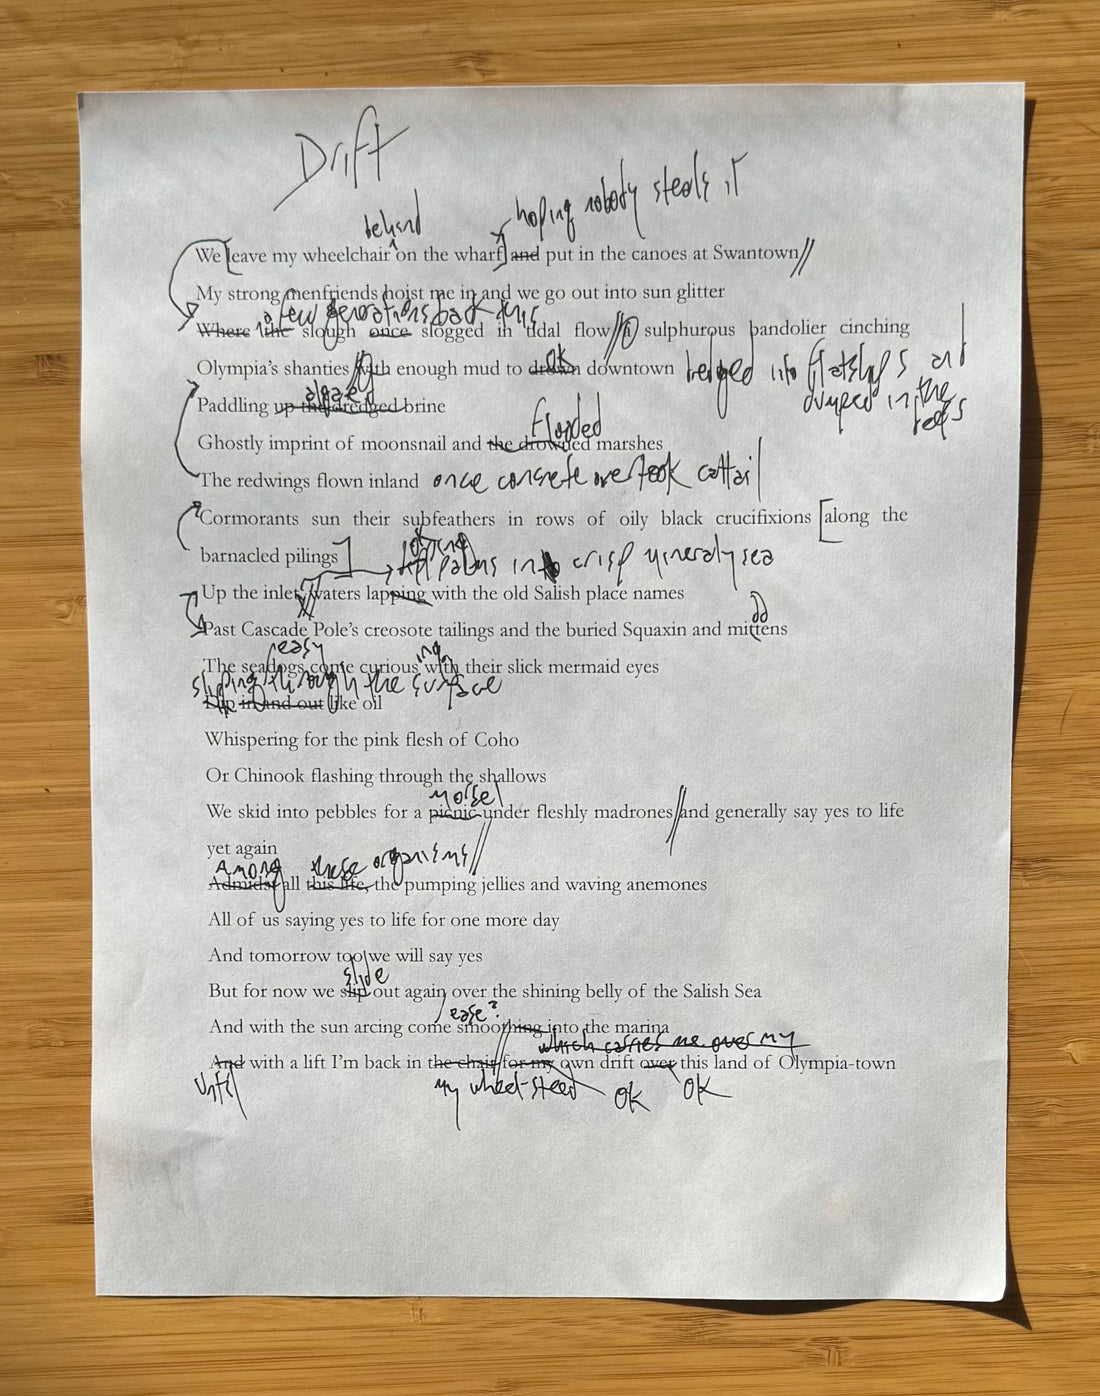 Drift
behind hoping nobody steals it
We leave my wheelchair on the wharf and put in the canoes at Swantown
My strong menfriends hoist me in and we go out into sun glitter
a few generations back this
Where the slough once slogged in tidal flow // a sulphurous bandolier cinching
Olympia's shanties with enough mud to drown downtown
dredged into flatships and
dumped in the
algaed
Paddling up the dredged brine
flooded
Ghostly imprint of moonsnail and the drowned marshes
The redwings flown inland once concrete overtook cattail
Cormorants sun their subfeathers in rows of oily black crucifixions [along the
barnacled pilings] palms into crisp mineraly sea
Up the inlet waters lapping with the old Salish place names
Past Cascade Pole's creosote tailings and the buried Squaxin and mittens
easy ing
The seadogs come curious with their slick mermaid eyes
slipping through the surface
Dip in and out like oil
Whispering for the pink flesh of Coho
Or Chinook flashing through the shallows
morsel
We skid into pebbles for a picnic under fleshly madrones // and generally say yes to life
yet again
Among these organisms //
Admidst all this life, the pumping jellies and waving anemones
All of us saying yes to life for one more day
And tomorrow too we will say yes
slide
But for now we slip out again over the shining belly of the Salish Sea
ease?
And with the sun arcing come smoothing into the marina
which carries me over my
And with a lift I'm back in the chair for my own drift over this land of Olympia-town
Until my wheel-steed OK OK